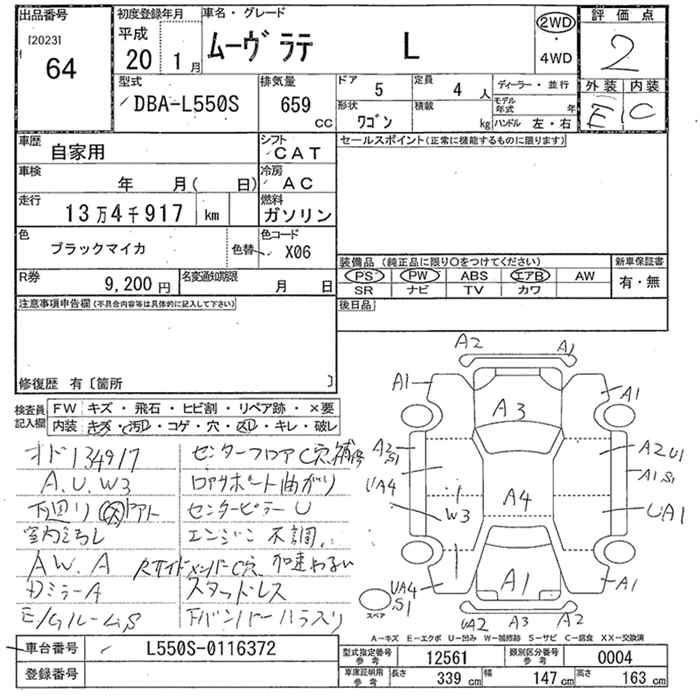 出品番号 初度登録年月 車名・グレード 2WD 評価点
[2023] 64 平成 20年 1月 ムーヴラテ L 4WD 2
型式 DBA-L550S 排気量 659 cc ドア 5 定員 4人 ディーラー・並行 外装 内装
形状 ワゴン 積載 kg モデル年式 年 ハンドル 左・右 E C
車歴 自家用 シフト CAT セールスポイント(正常に機能するものに限ります)
車検 年 月( 日) 冷房 AC
走行 13万4千917 km 燃料 ガソリン
色 ブラックマイカ 色替 色コード X06
装備品(純正品に限り○をつけてください) 新車保証書
R券 9,200円 名変通知期限 月 日 PS PW ABS エアB AW 有・無
SR ナビ TV カワ
注意事項申告欄(不具合内容等は具体的に記入して下さい) 後日品
修復歴 有〔箇所 〕
検査員記入欄 FW キズ・飛石・ヒビ割・リペア跡・×要
内装 キズ・汚レ・コゲ・穴・スレ・キレ・破レ
オド134917 センターフロアC穴補修
A.U.W3
下廻り センターピラーU
エンジン不調
AW.A RサイドメンバーC穴
ドミラーA スタッドレス
E/GルームS
A2 A1
A1 A3 A1
A2 S1 A2U1
A1S1
UA4 W3 A4 UA1
UA4 S1 A1 A1
スペア UA2 A3 A2
A－キズ E－エクボ U－凹み W－補修跡 S－サビ C－腐食 XX－交換済
車台番号 L550S-0116372 型式指定番号 参考 12561 類別区分番号 参考 0004
登録番号 車庫証明用 参考 長さ 339 cm 幅 147 cm 高さ 163 cm